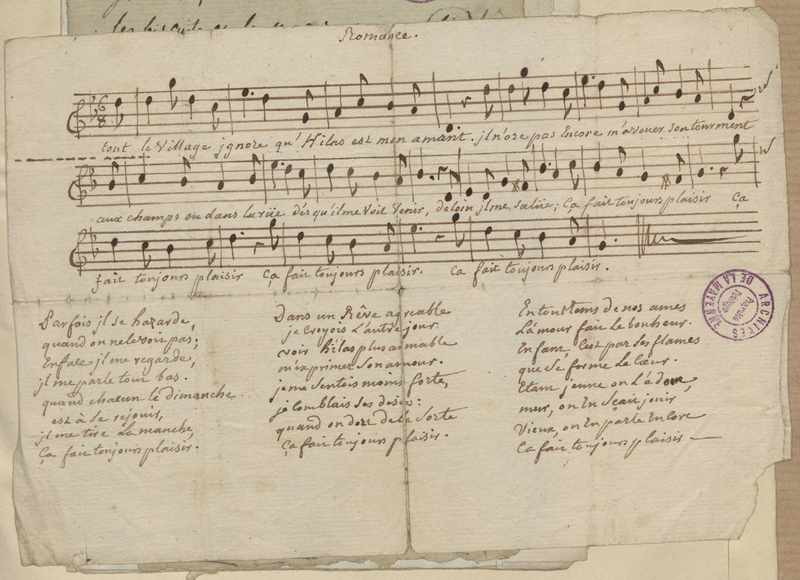 Romance.
tout le village jgnore qu'Hilas est mon amant. jl n'oze pas Encore m'avouer son tourment
aux champs ou dans la rüe dès qu'il me voit Venir, de loin jl me salüe; Ça fait toujours plaisir Ça
fait toujours plaisir Ça fait toujours plaisir. Ça fait toujours plaisir.
Parfois jl se hazarde,
quand on ne le voit pas;
Enface jl me regarde,
jl me parle tout bas.
quand chacun le dimanche
est à se rejouir,
jl me tire La manche,
Ça fait toujours plaisir.
Dans un Rêve agreable
je Croyois L'autre jour
voir hilas plus aimable
m'exprimer Son amour.
je me sentois moins forte,
je Comblais Ses desirs:
quand on dort de la Sorte
Ça fait toujours plaisir.
En tout tems de nos ames
L'amour fait Le bonheur.
Enfant, C'est par ses flames
que se forme Le Cœur.
Etant jeune on L'adore,
mur, on En Sçait jouir
Vieux, on En parle Encore
Ça fait toujours plaisir
ARCHIVES DE LA MAYENNE